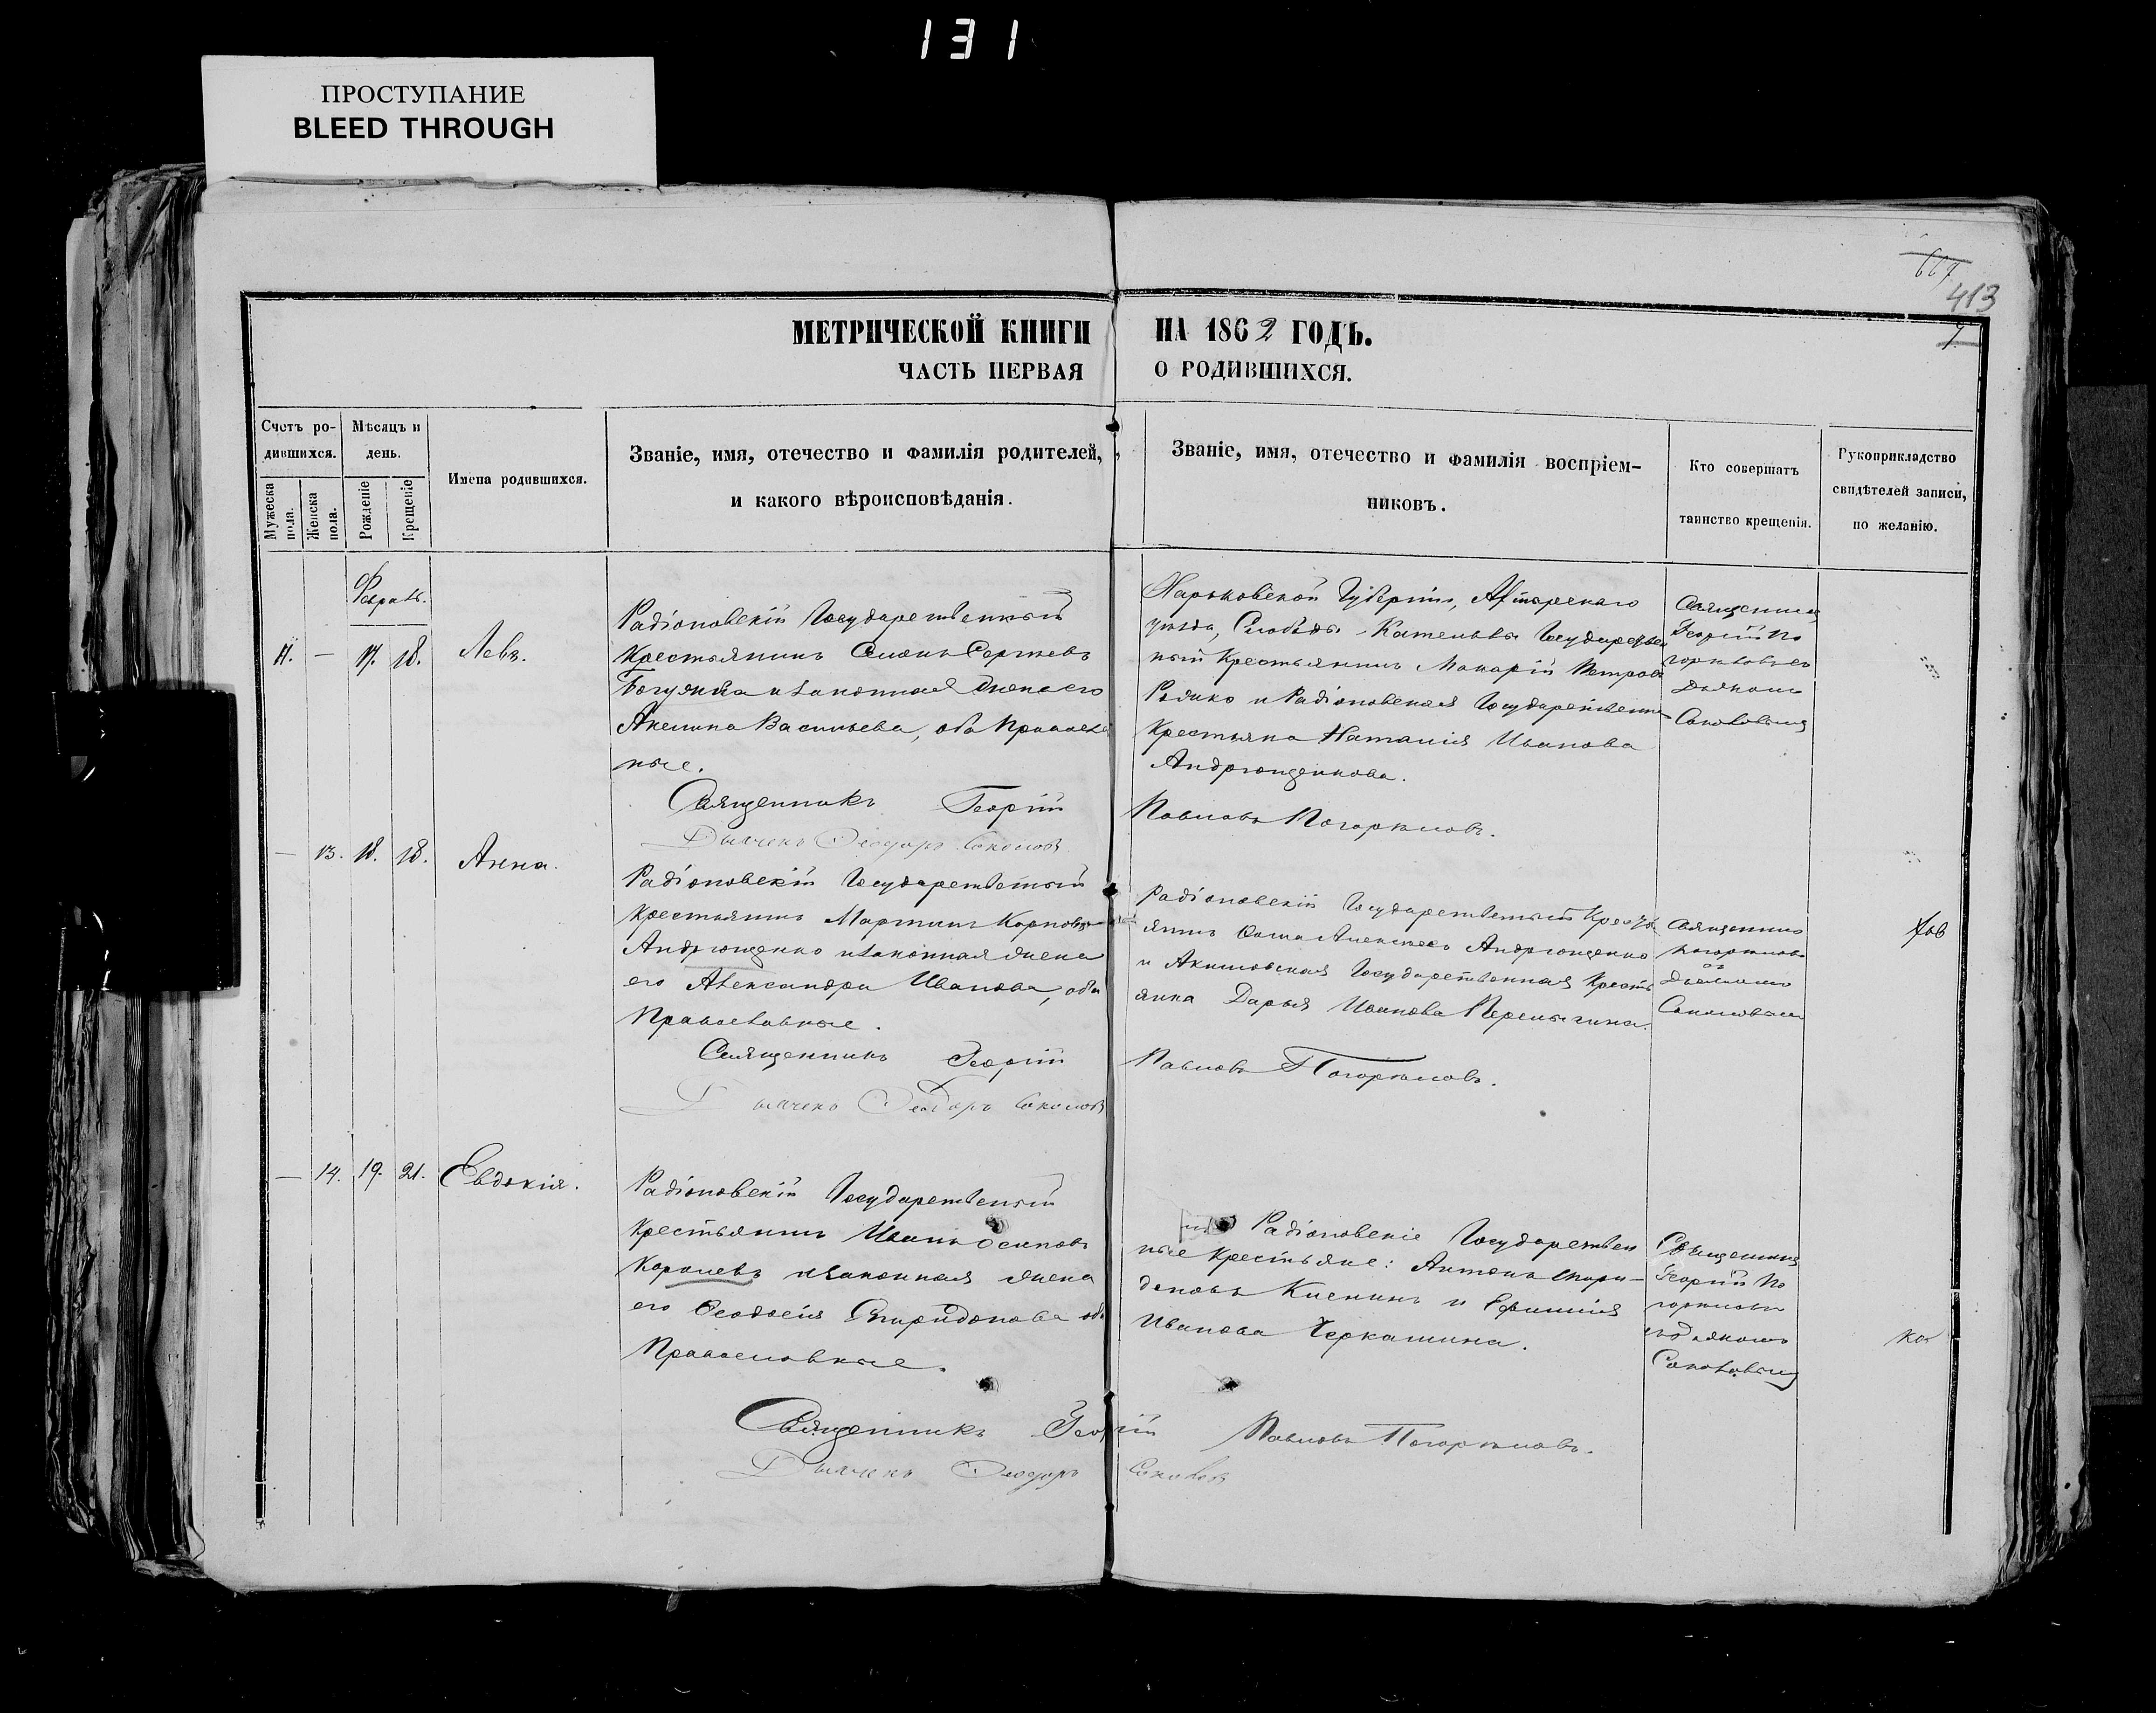 131
ПРОСТУПАНИЕ
BLEED THROUGH
667
413
7
МЕТРИЧЕСКОЙ КНИГИ НА 1862 ГОДЪ.
ЧАСТЬ ПЕРВАЯ О РОДИВШИХСЯ.
Счетъ ро-
дившихся.
Мужеска пола.
Женска пола.
Мѣсяцъ и
день.
Рожденіе
Крещеніе
Имена родившихся.
Званіе, имя, отечество и фамилія родителей,
и какого вѣроисповѣданія.
Званіе, имя, отечество и фамилія воспріем-
никовъ.
Кто совершатъ
таинство крещенія.
Рукоприкладство
свидѣтелей записи,
по желанію.
— 17. 18. Левъ.
Радіоновскій Государственный
Крестьянинъ Семенъ Сергѣевъ
и законная жена его
Акилина Васильева, оба Православ
ные.
Харьковской Губерніи, Ахтырскаго
уѣзда, Слободы Котельвы Государствен
ный Крестьянинъ Макарій Петровъ
и Радіоновская Государственная
Крестьянка Наталія Иванова
Андрющенкова.
Священникъ
Георгій По
горѣловъ съ
Дьякономъ
Соколовымъ
Священникъ Георгій Павловъ Погорѣловъ.
Дьячекъ Ѳеодоръ Соколовъ
— 13. 18. 18. Анна.
Радіоновскій Государственный
Крестьянинъ Мартинъ Карповъ
Андрющенко и законная жена
его Александра Иванова, оба
Православные.
Радіоновскій Государственный Кресть
янинъ Ѳома Алексѣевъ Андрющенко
и Акимовская Государственная Кресть
янка Дарья Иванова
Священникъ
Погорѣловъ
съ
Дьякономъ
Соколовымъ
Священникъ Георгій Павловъ Погорѣловъ.
Дьячекъ Ѳеодоръ Соколовъ
— 14. 19. 21. Евдокія.
Радіоновскій Государственный
Крестьянинъ Иванъ Осиповъ
Королевъ и законная жена
его Ѳеодосія Спиридонова оба
Православные.
Радіоновскіе Государствен
ные Крестьяне: Антонъ Спири-
доновъ и
Иванова Черкашина.
Священникъ
Георгій По
горѣловъ
съ Дьякономъ
Соколовымъ
Священникъ Георгій Павловъ Погорѣловъ.
Дьячекъ Ѳеодоръ Соколовъ